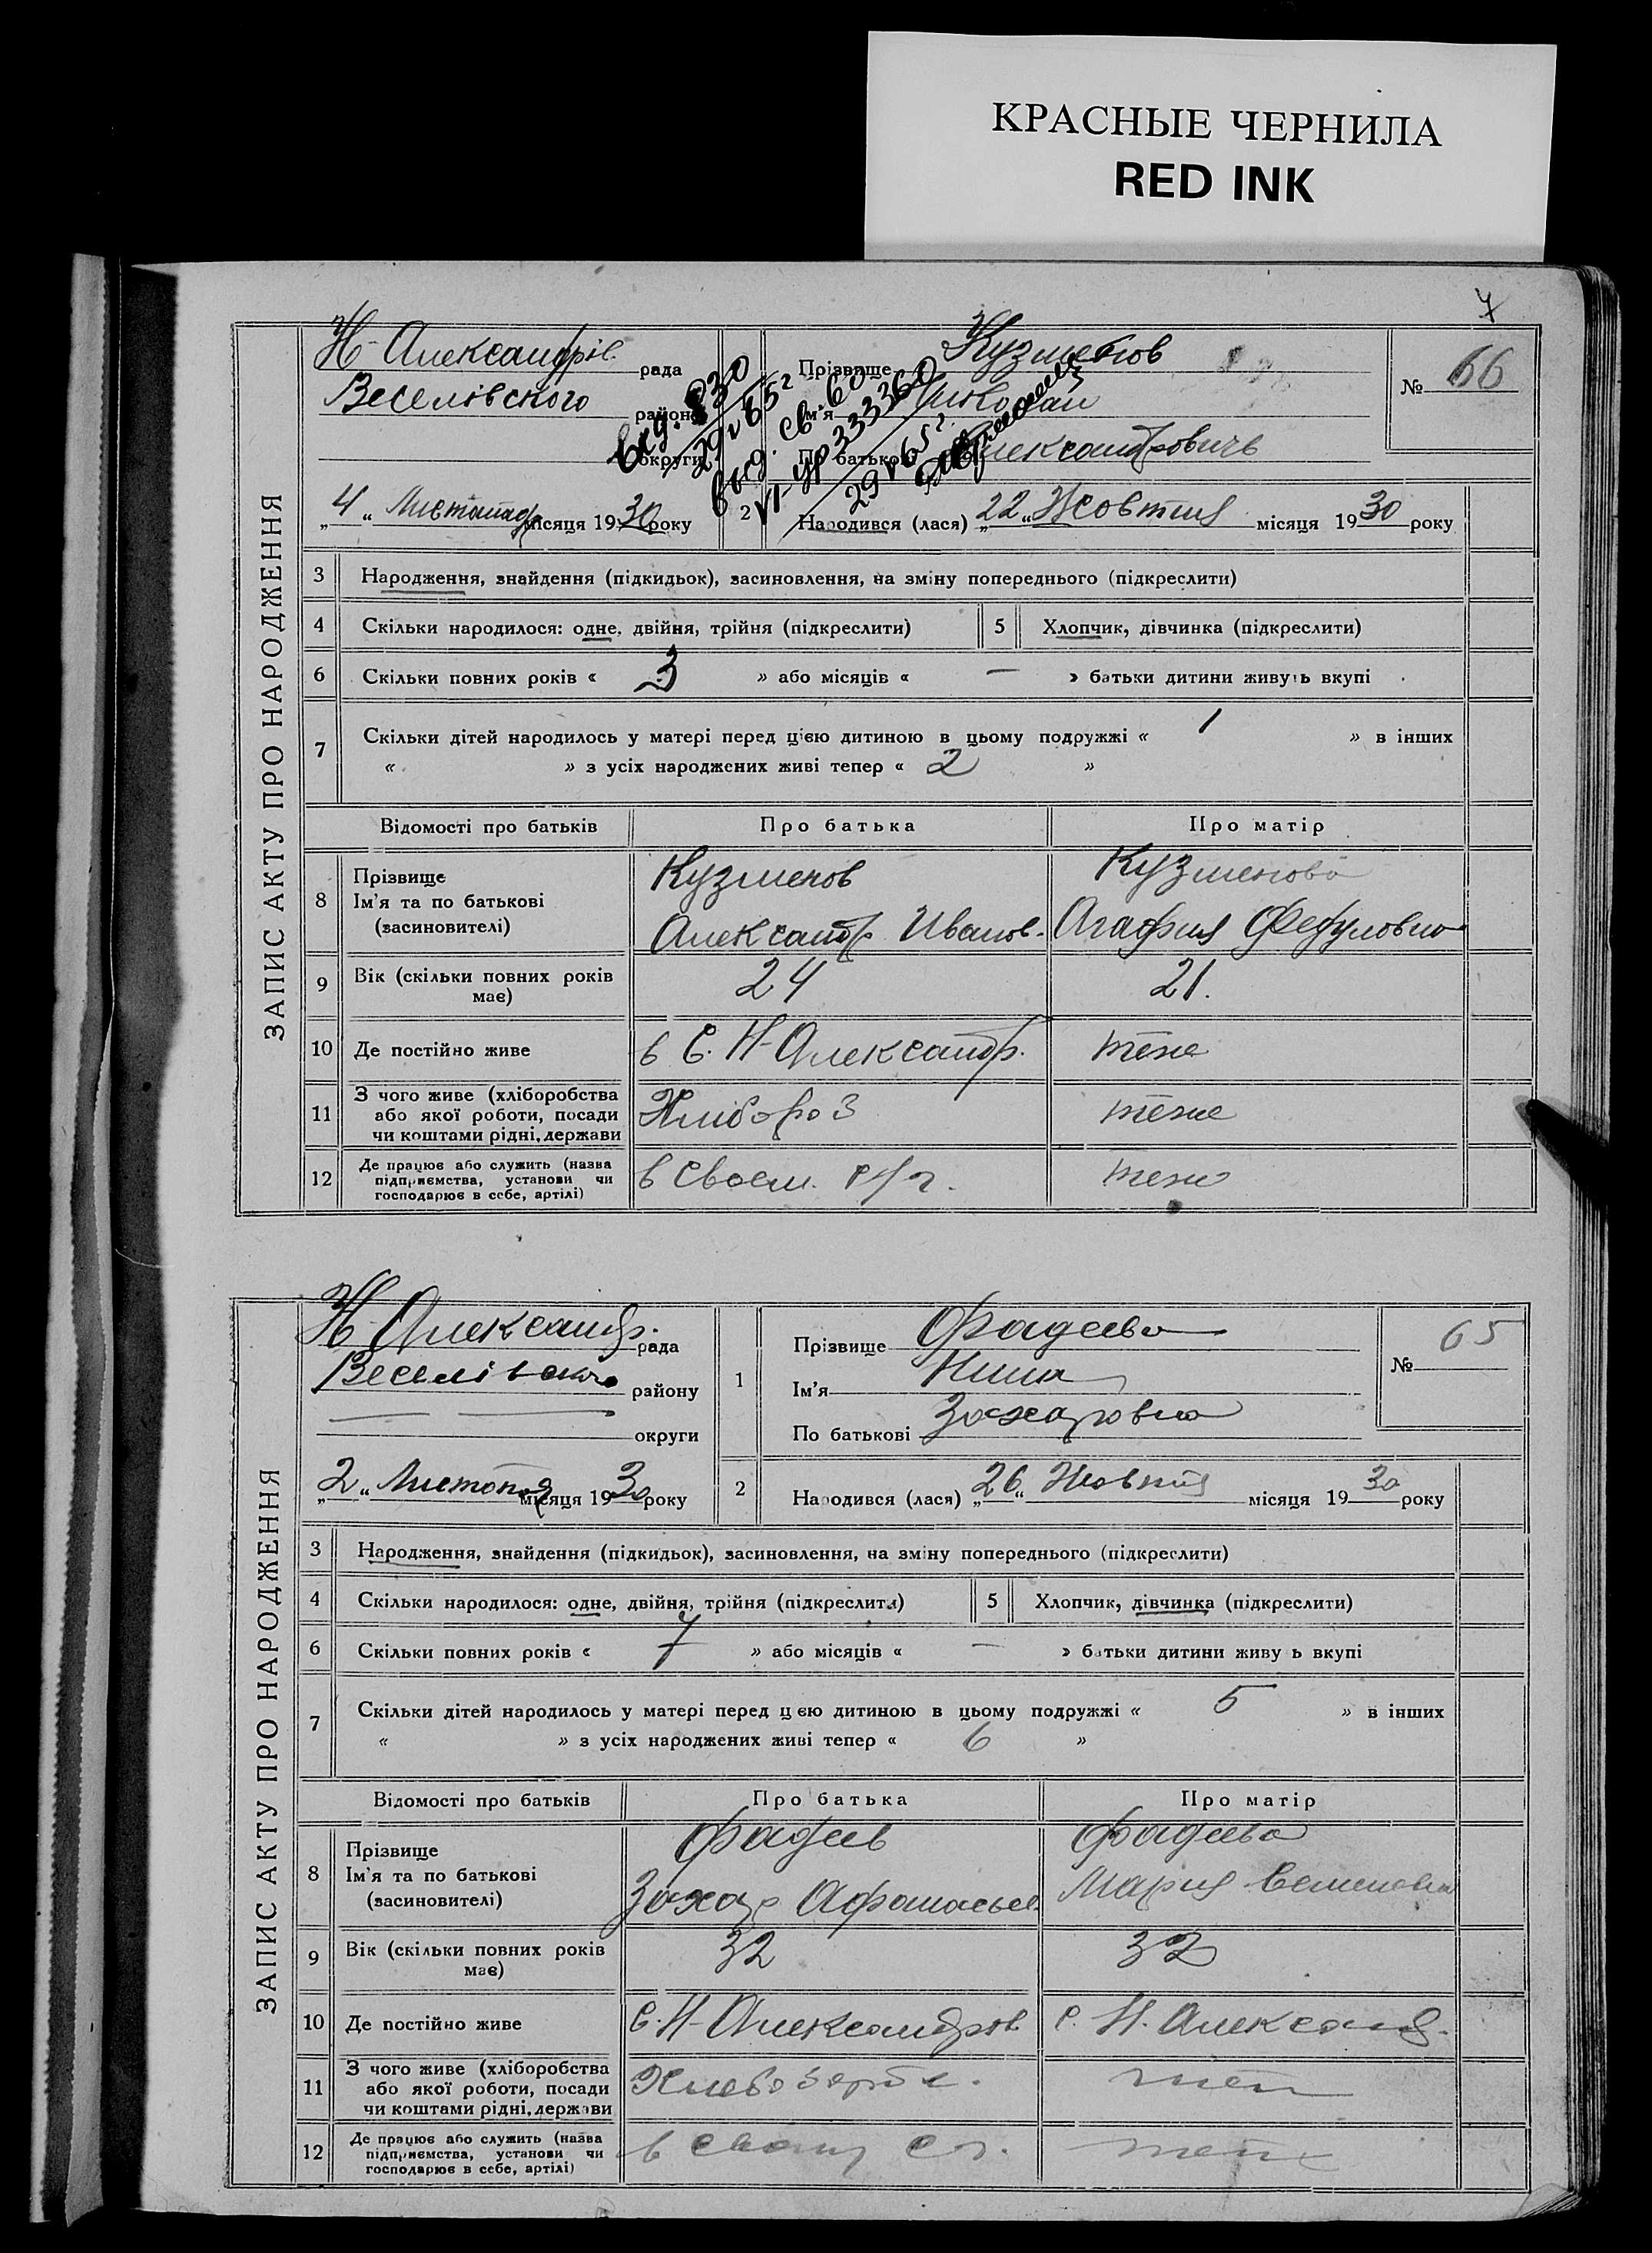 КРАСНЫЕ ЧЕРНИЛА
RED INK
7
ЗАПИС АКТУ ПРО НАРОДЖЕННЯ
Н-Александрів. рада
Веселівского району
округи
„4“ Листопад місяця 1930 року
Прізвище Кузменов
Ім'я Николай
По батькові Александровичь
№ 66
2 Народився (лася) „22“ Жовтня місяця 1930 року
вид. 830
29 V 65 г
выд. св-во
VI-УР 333360
29 V 65 г.
3 Народження, знайдення (підкидьок), засиновлення, на зміну попереднього (підкреслити)
4 Скільки народилося: одне, двійня, трійня (підкреслити) 5 Хлопчик, дівчинка (підкреслити)
6 Скільки повних років « 3 » або місяців « — » батьки дитини живуть вкупі
7 Скільки дітей народилось у матері перед цією дитиною в цьому подружжі « 1 » в інших
« » з усіх народжених живі тепер « 2 »
Відомості про батьків Про батька Про матір
8 Прізвище Ім'я та по батькові (засновителі) Кузменов Кузменова
Александр Иванов. Агафия Федуловна
9 Вік (скільки повних років має) 24 21.
10 Де постійно живе в С. Н-Александр. теже
11 З чого живе (хліборобства або якої роботи, посади чи коштами рідні, держави Хлібороз теже
12 Де працює або служить (назва підприємства, установи чи господарює в себе, артілі) в своем. с/г. теже
ЗАПИС АКТУ ПРО НАРОДЖЕННЯ
Н-Александр. рада
Веселівского району
— — округи
„2“ Листопад місяця 1930 року
1 Прізвище Фадеева
Ім'я Нина
По батькові Захаровна
№ 65
2 Народився (лася) „26“ Жовтня місяця 1930 року
3 Народження, знайдення (підкидьок), засиновлення, на зміну попереднього (підкреслити)
4 Скільки народилося: одне, двійня, трійня (підкреслити) 5 Хлопчик, дівчинка (підкреслити)
6 Скільки повних років « 7 » або місяців « — » батьки дитини живу ь вкупі
7 Скільки дітей народилось у матері перед цією дитиною в цьому подружжі « 5 » в інших
« » з усіх народжених живі тепер « 6 »
Відомості про батьків Про батька Про матір
8 Прізвище Ім'я та по батькові (засиновителі) Фадеев Фадеева
Захар Афанасьев Мария Семеновна
9 Вік (скільки повних років має) 32 32
10 Де постійно живе С. Н-Александров. С. Н. Александ.
11 З чого живе (хліборобства або якої роботи, посади чи коштами рідні, держави
12 Де працює або служить (назва підприємства, установи чи господарює в себе, артілі)